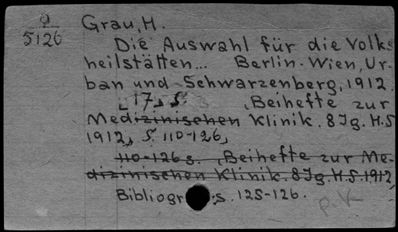 9
5126
Grau, H.
Die Auswahl für die Volks
heilstätten... Berlin-Wien, Ur-
ban und Schwarzenberg, 1912.
17, S. (Beihefte zur
Medizinischen Klinik. 8 Jg. H.5
1912, S. 110-126,
110-126 s. (Beihefte zur Me-
dizinischen Klinik. 8 Jg. H.5.1912
Bibliogr s. 125-126.